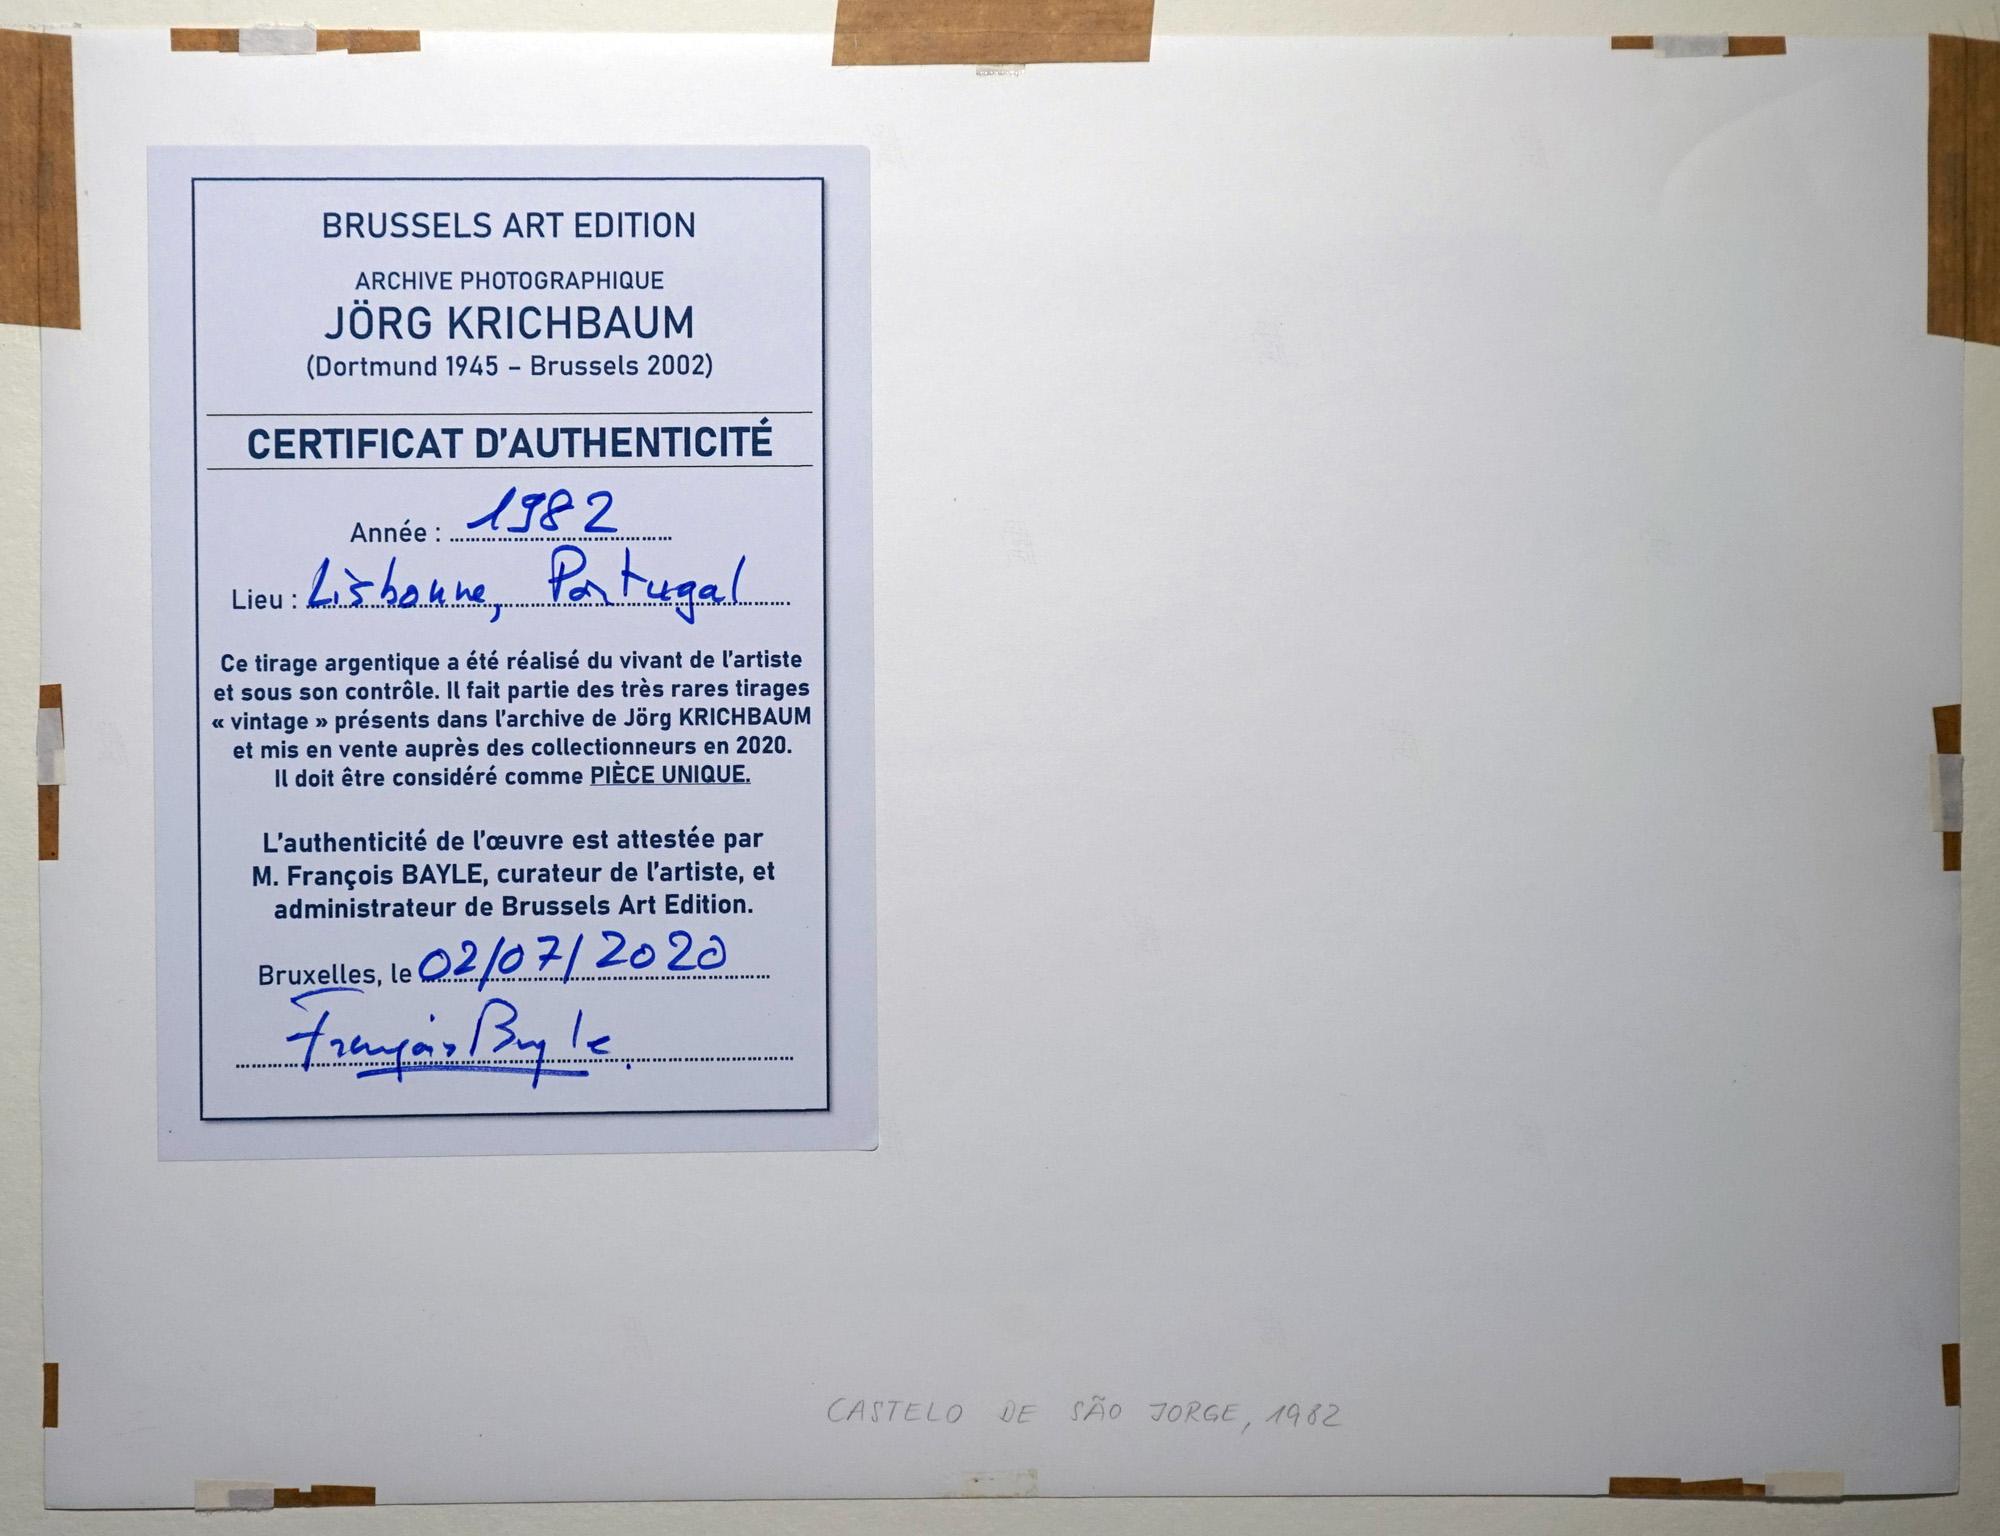 BRUSSELS ART EDITION
ARCHIVE PHOTOGRAPHIQUE
JÖRG KRICHBAUM
(Dortmund 1945 – Brussels 2002)
CERTIFICAT D'AUTHENTICITÉ
Année : 1982
Lieu : Lisbonne, Portugal
Ce tirage argentique a été réalisé du vivant de l'artiste
et sous son contrôle. Il fait partie des très rares tirages
« vintage » présents dans l'archive de Jörg KRICHBAUM
et mis en vente auprès des collectionneurs en 2020.
Il doit être considéré comme PIÈCE UNIQUE.
L'authenticité de l'œuvre est attestée par
M. François BAYLE, curateur de l'artiste, et
administrateur de Brussels Art Edition.
Bruxelles, le 02/07/2020
François Bayle
CASTELO DE SÃO JORGE, 1982